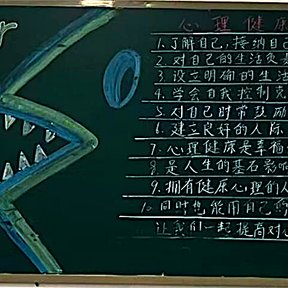 心理健康
1.了解自己,接纳自己
2.对自己的生活负
3.设立明确的生活
4.学会自我控制
5.对自己时常鼓励
6.建立良好的人际
7.心理健康是幸福
8.是人生的基石影响
9.拥有健康心理的人
10.同时也能用自己
让我们一起提高对心